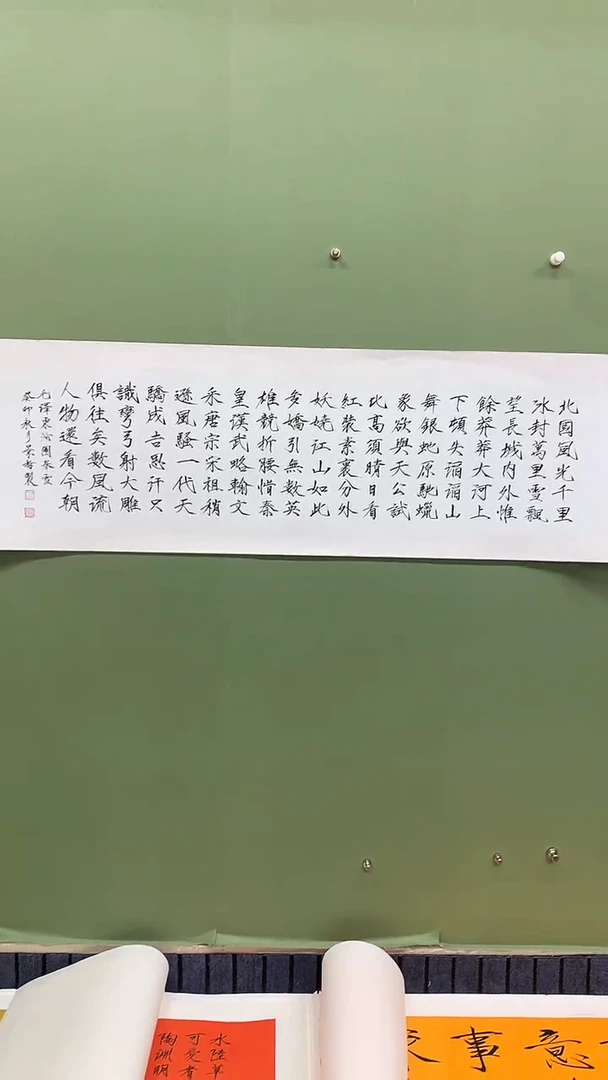 北國風光千里
冰封萬里雪飄
望長城内外惟
餘莽莽大河上
下頓失滔滔山
舞銀蛇原馳蠟
象欲與天公試
比高須晴日看
紅裝素裹分外
妖嬈江山如此
多嬌引無數英
雄競折腰惜秦
皇漢武略輸文
采唐宗宋祖稍
遜風騷一代天
驕成吉思汗只
識彎弓射大雕
俱往矣數風流
人物還看今朝
毛澤東沁園春雪
癸卯秋月製
水陸草
可愛者
陶淵明
意事